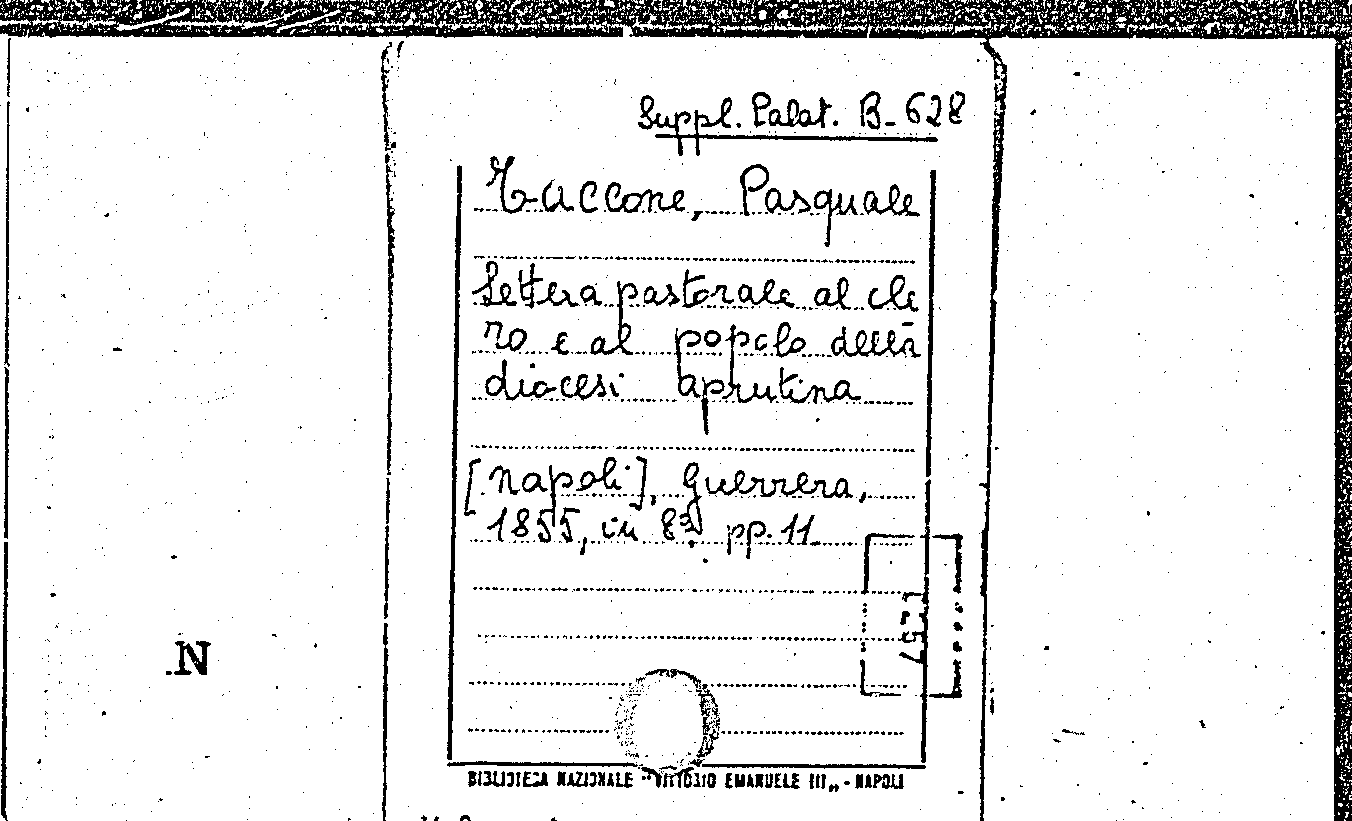 Suppl. Palat. B-628
Taccone, Pasquale
Lettera pastorale al cle
ro e al popolo della
diocesi aprutina
[Napoli], Guerrera,
1855, in 8º, pp. 11
.N
BIBLIOTECA NAZIONALE "VITTORIO EMANUELE III„ - NAPOLI